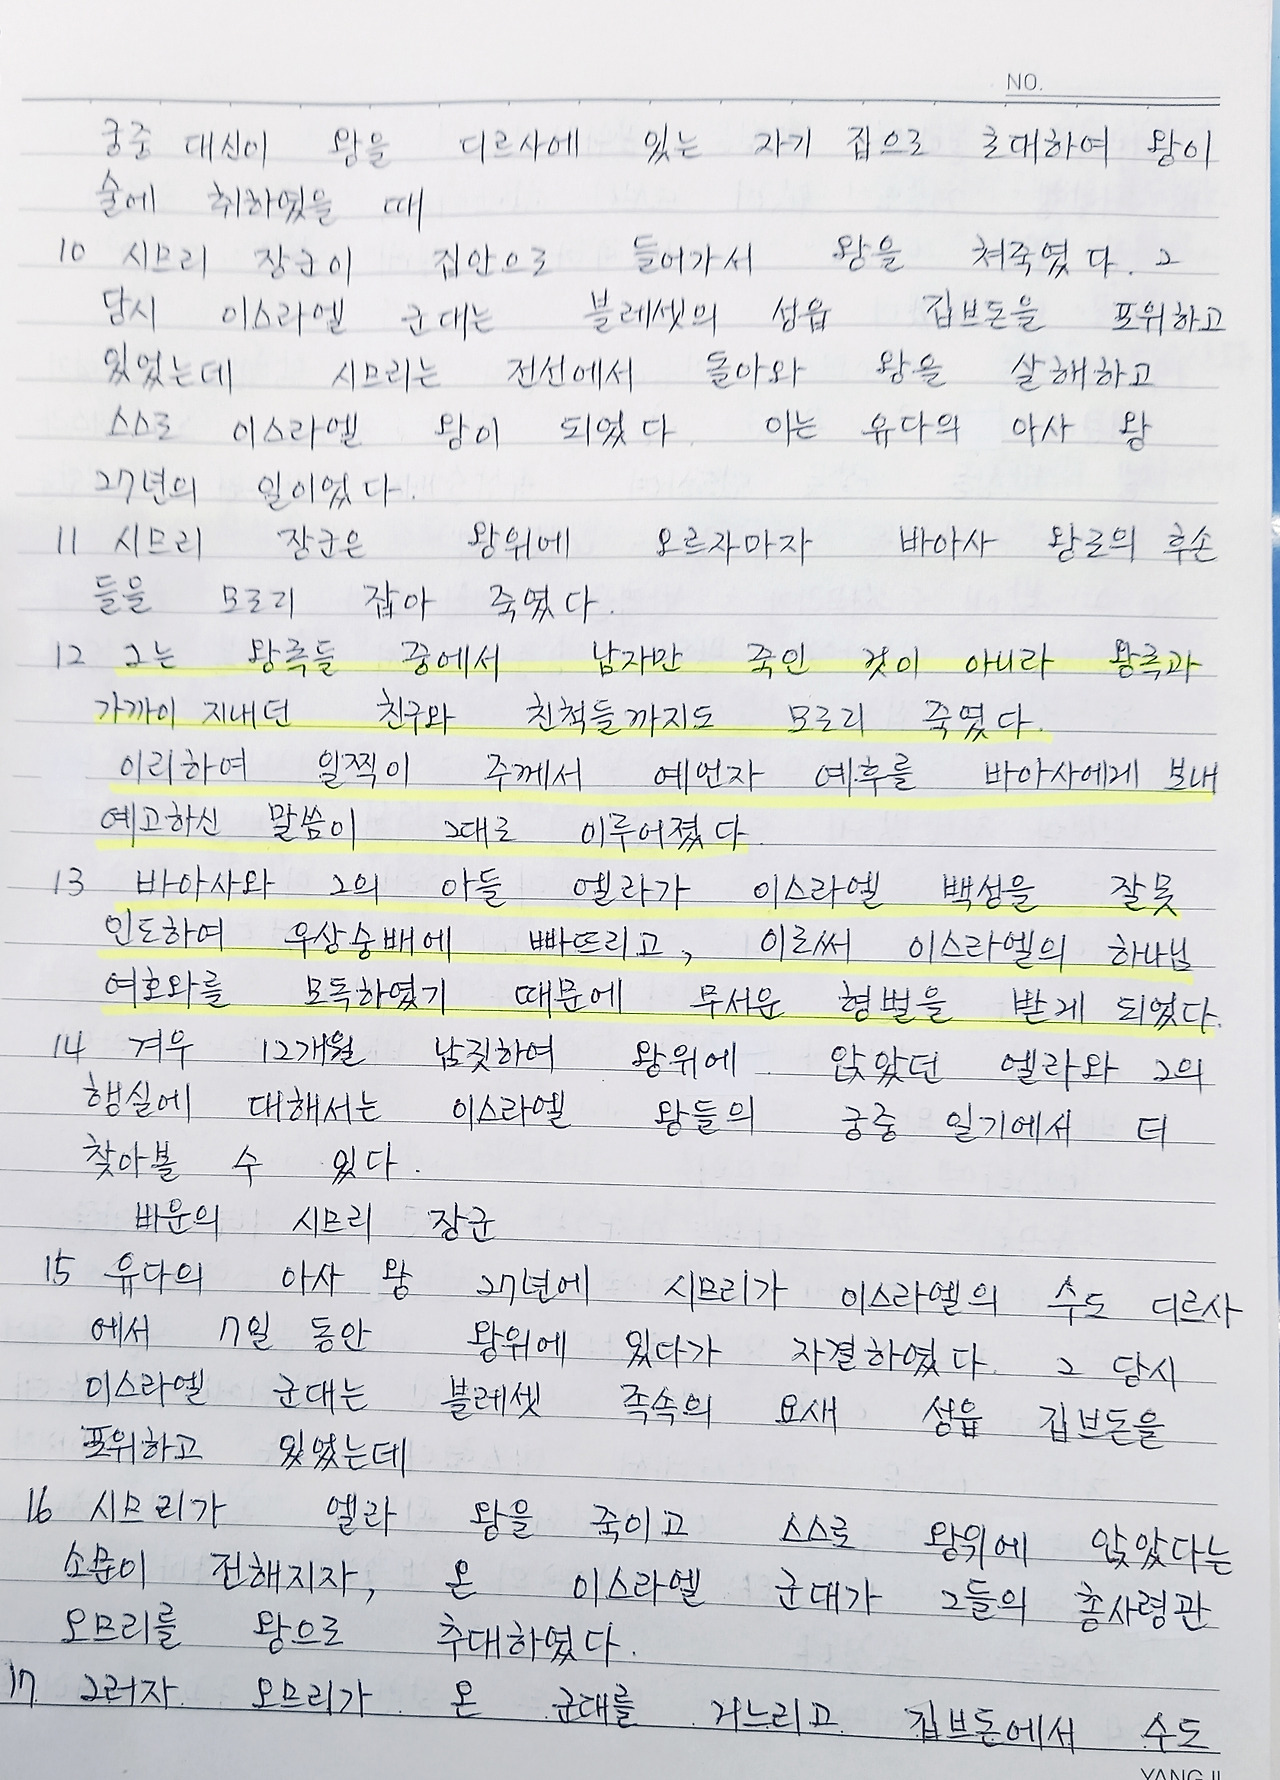 NO.
궁중 대신이 왕을 디르사에 있는 자기 집으로 초대하여 왕이
술에 취하였을 때
10 시므리 장군이 집안으로 들어가서 왕을 쳐죽였다. 그
당시 이스라엘 군대는 블레셋의 성읍 깁브돈을 포위하고
있었는데 시므리는 전선에서 돌아와 왕을 살해하고
스스로 이스라엘 왕이 되었다 이는 유다의 아사 왕
27년의 일이었다.
11 시므리 장군은 왕위에 오르자마자 바아사 왕조의 후손
들을 모조리 잡아 죽였다.
12 그는 왕족들 중에서 남자만 죽인 것이 아니라 왕족과
가까이 지내던 친구와 친척들까지도 모조리 죽였다.
이리하여 일찍이 주께서 예언자 예후를 바아사에게 보내
예고하신 말씀이 그대로 이루어졌다.
13 바아사와 그의 아들 엘라가 이스라엘 백성을 잘못
인도하여 우상숭배에 빠뜨리고, 이로써 이스라엘의 하나님
여호와를 모독하였기 때문에 무서운 형벌을 받게 되었다.
14 겨우 12개월 남짓하여 왕위에 앉았던 엘라와 그의
행실에 대해서는 이스라엘 왕들의 궁중 일기에서 더
찾아볼 수 있다.
비운의 시므리 장군
15 유다의 아사 왕 27년에 시므리가 이스라엘의 수도 디르사
에서 7일 동안 왕위에 있다가 자결하였다. 그 당시
이스라엘 군대는 블레셋 족속의 요새 성읍 깁브돈을
포위하고 있었는데
16 시므리가 엘라 왕을 죽이고 스스로 왕위에 앉았다는
소문이 전해지자, 온 이스라엘 군대가 그들의 총사령관
오므리를 왕으로 추대하였다.
17 그러자 오므리가 온 군대를 거느리고 깁브돈에서 수도
YANGJI